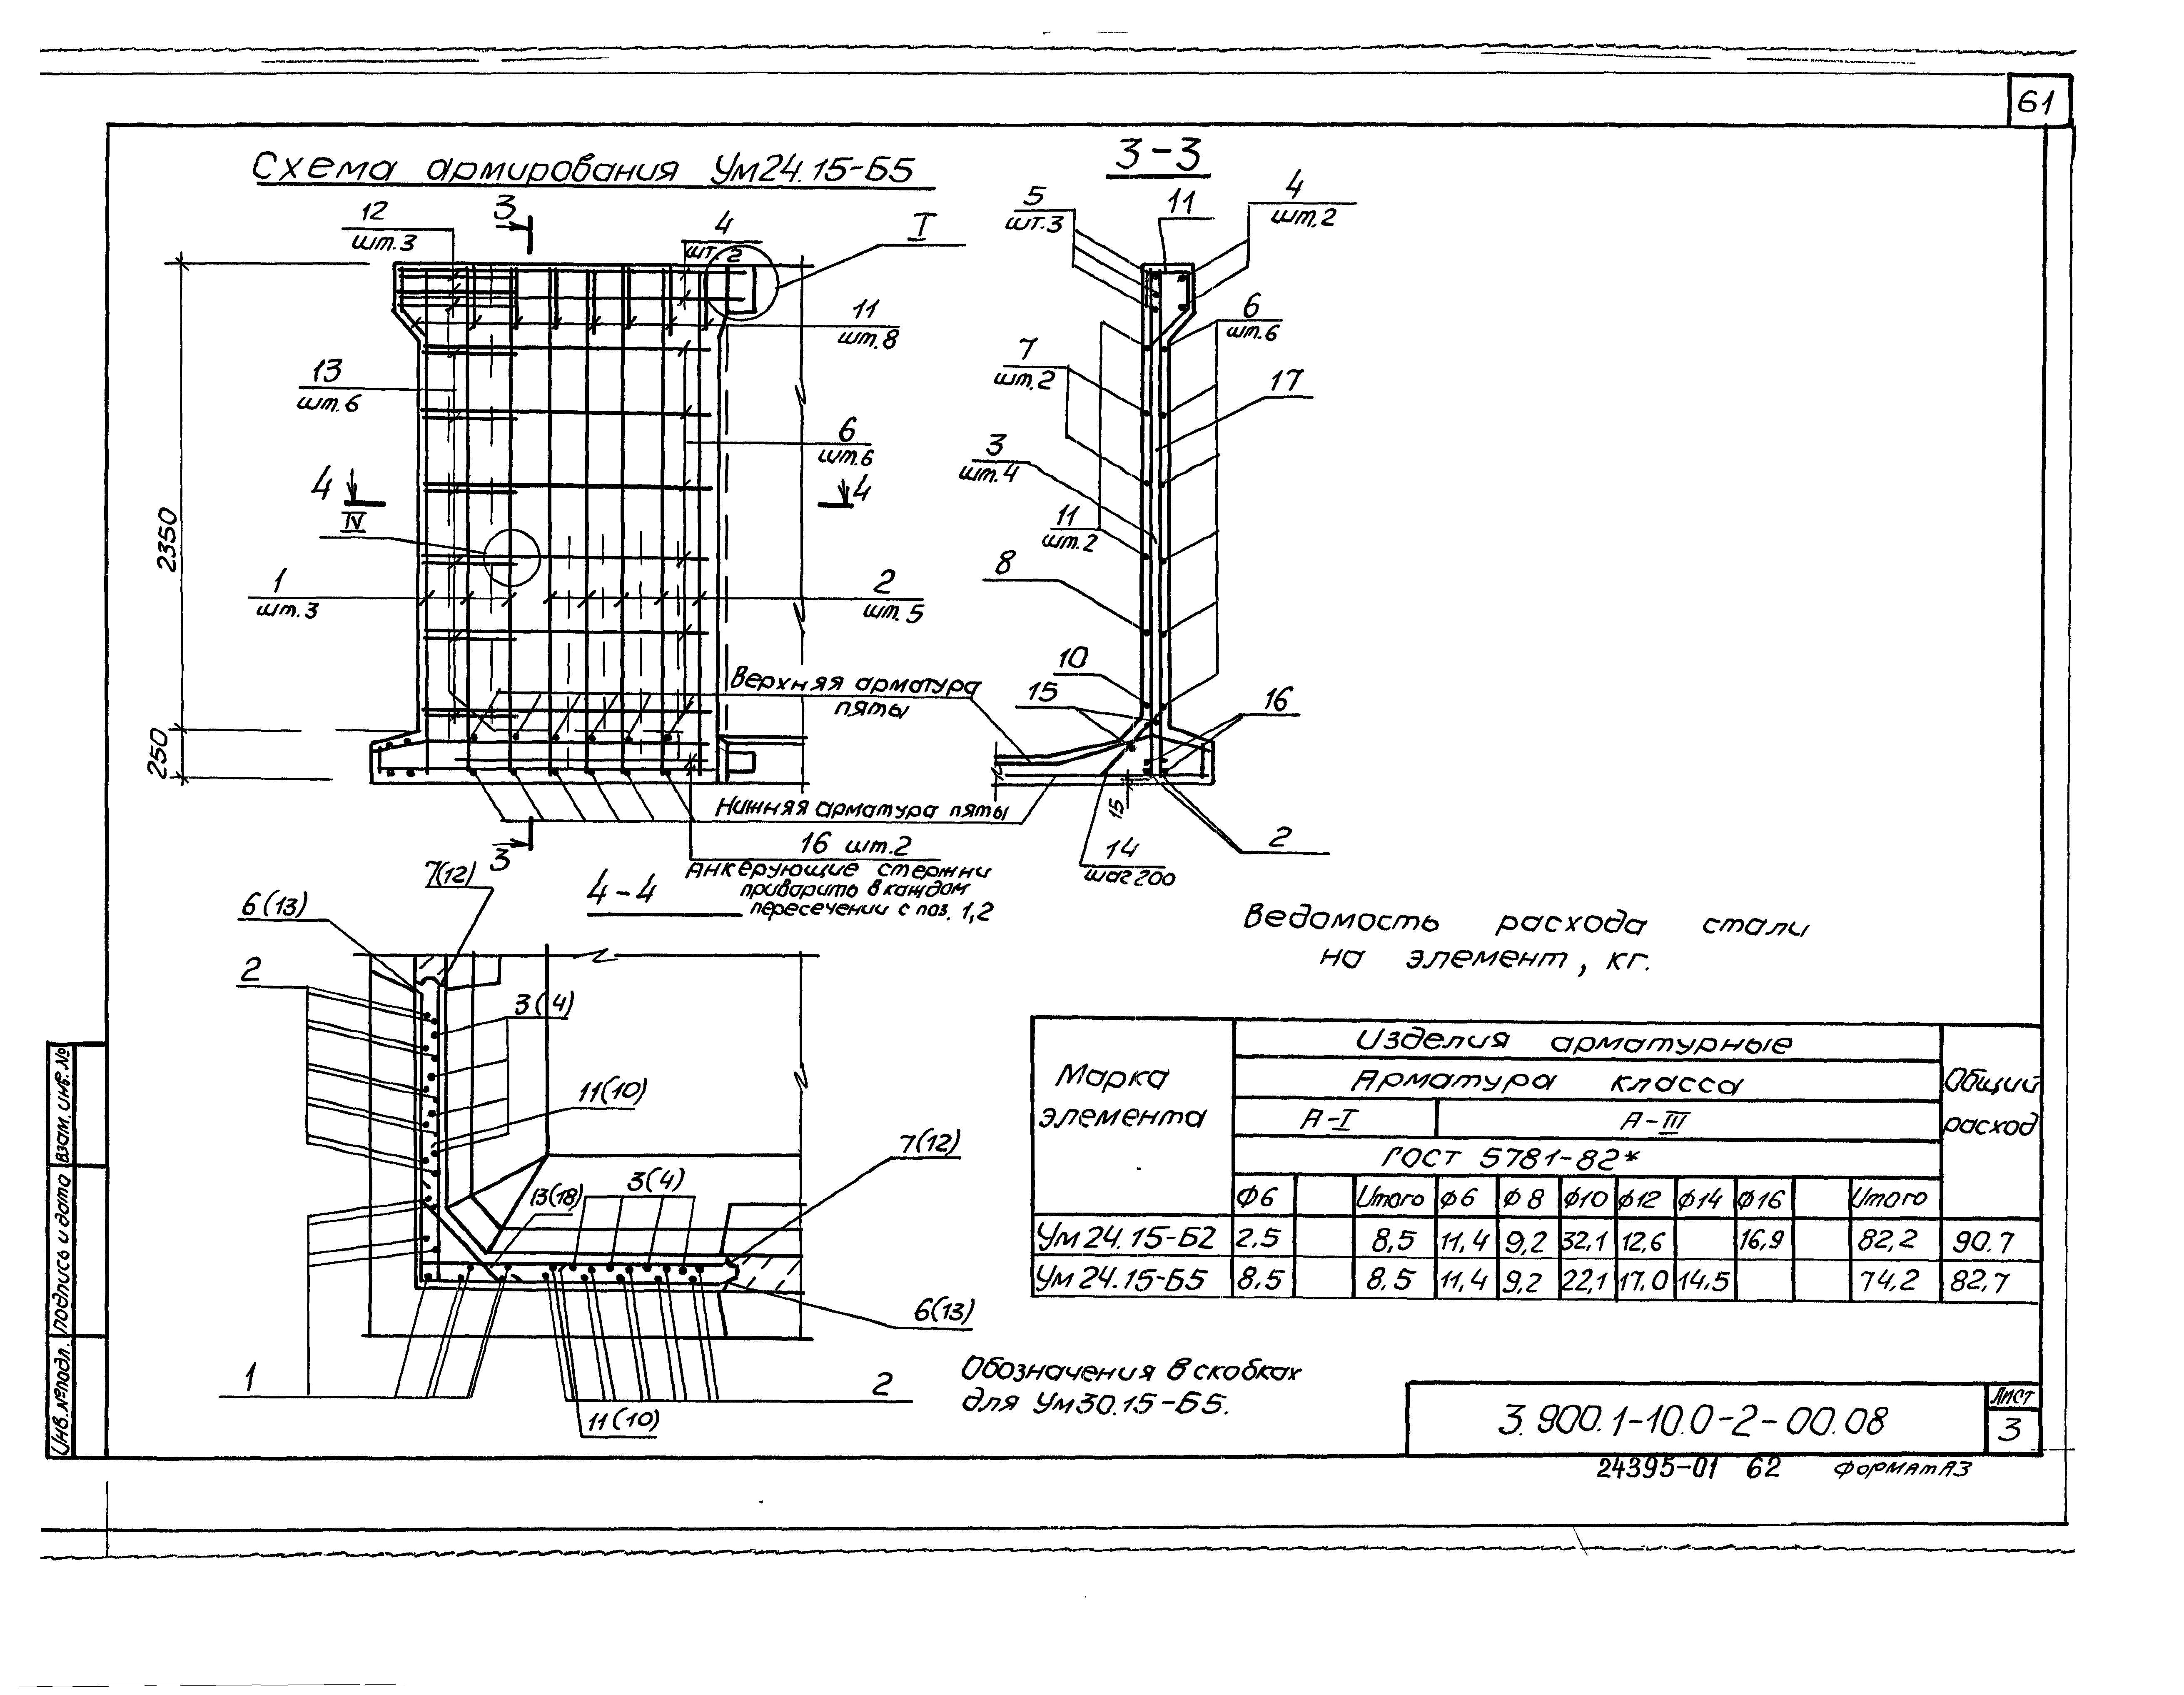 61
Схема армирования Ум24.15-Б5
3-3
3
12
шт.3
4
шт.2
I
11
шт.8
13
шт.6
6
шт.6
4
IV
4
2350
1
шт.3
2
шт.5
Верхняя арматура
пяты
250
Нижняя арматура пяты
3
16 шт.2
Анкерующие стержни
приварить в каждом
пересечении с поз. 1,2
5
шт.3
11
4
шт.2
6
шт.6
7
шт.2
17
3
шт.4
11
шт.2
8
10
15
16
15
14
шаг 200
2
4-4
7(12)
6(13)
2
3(4)
11(10)
7(12)
13(18)
3(4)
6(13)
1
11(10)
2
Ведомость расхода стали
на элемент, кг.
Марка
элемента
Изделия арматурные
Общий
расход
Арматура класса
А-I А-III
ГОСТ 5781-82*
ф6 Итого ф6 ф8 ф10 ф12 ф14 ф16 Итого
Ум 24.15-Б2 2.5 8,5 11,4 9,2 32,1 12,6 16,9 82,2 90.7
Ум 24.15-Б5 8,5 8,5 11,4 9,2 22,1 17,0 14,5 74,2 82,7
Обозначения в скобках
для Ум30.15-Б5.
3.900.1-10.0-2-00.08
Лист
3
24395-01 62 Формат А3
Инв.№подл. Подпись и дата Взам.инв.№